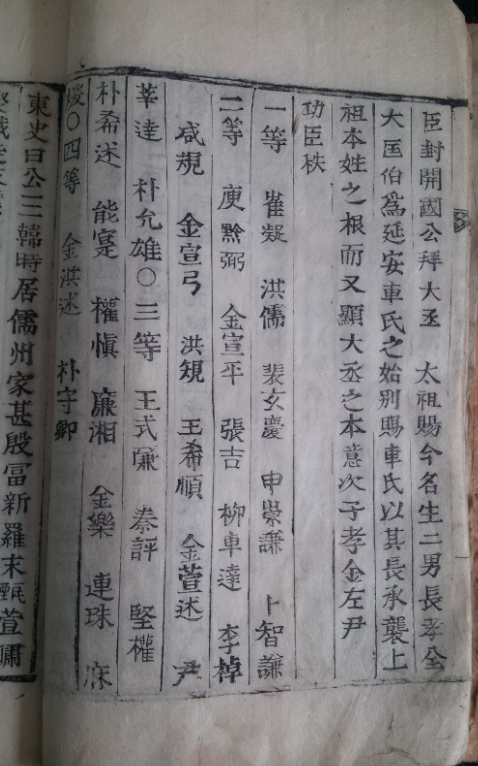 臣封開國公拜大丞　太祖賜今名生二男長孝全
大匡伯爲延安車氏之始別賜車氏以其長承襲上
祖本姓之根而又顯大丞之本意次子孝金左尹
功臣秩
一等　崔凝　洪儒　裴玄慶　申崇謙　卜智謙
二等　庾黔弼　金宣平　張吉　柳車達　李棹
咸規　金宣弓　洪規　王希順　金萱述　尹
莘達　朴允雄〇三等　王式廉　秦評　堅權
朴希述　能寔　權愼　廉湘　金樂　連珠　麻
煖〇四等　金洪述　朴守卿
東史曰公三韓時居儒州家甚殷富新羅末甄萱嘯